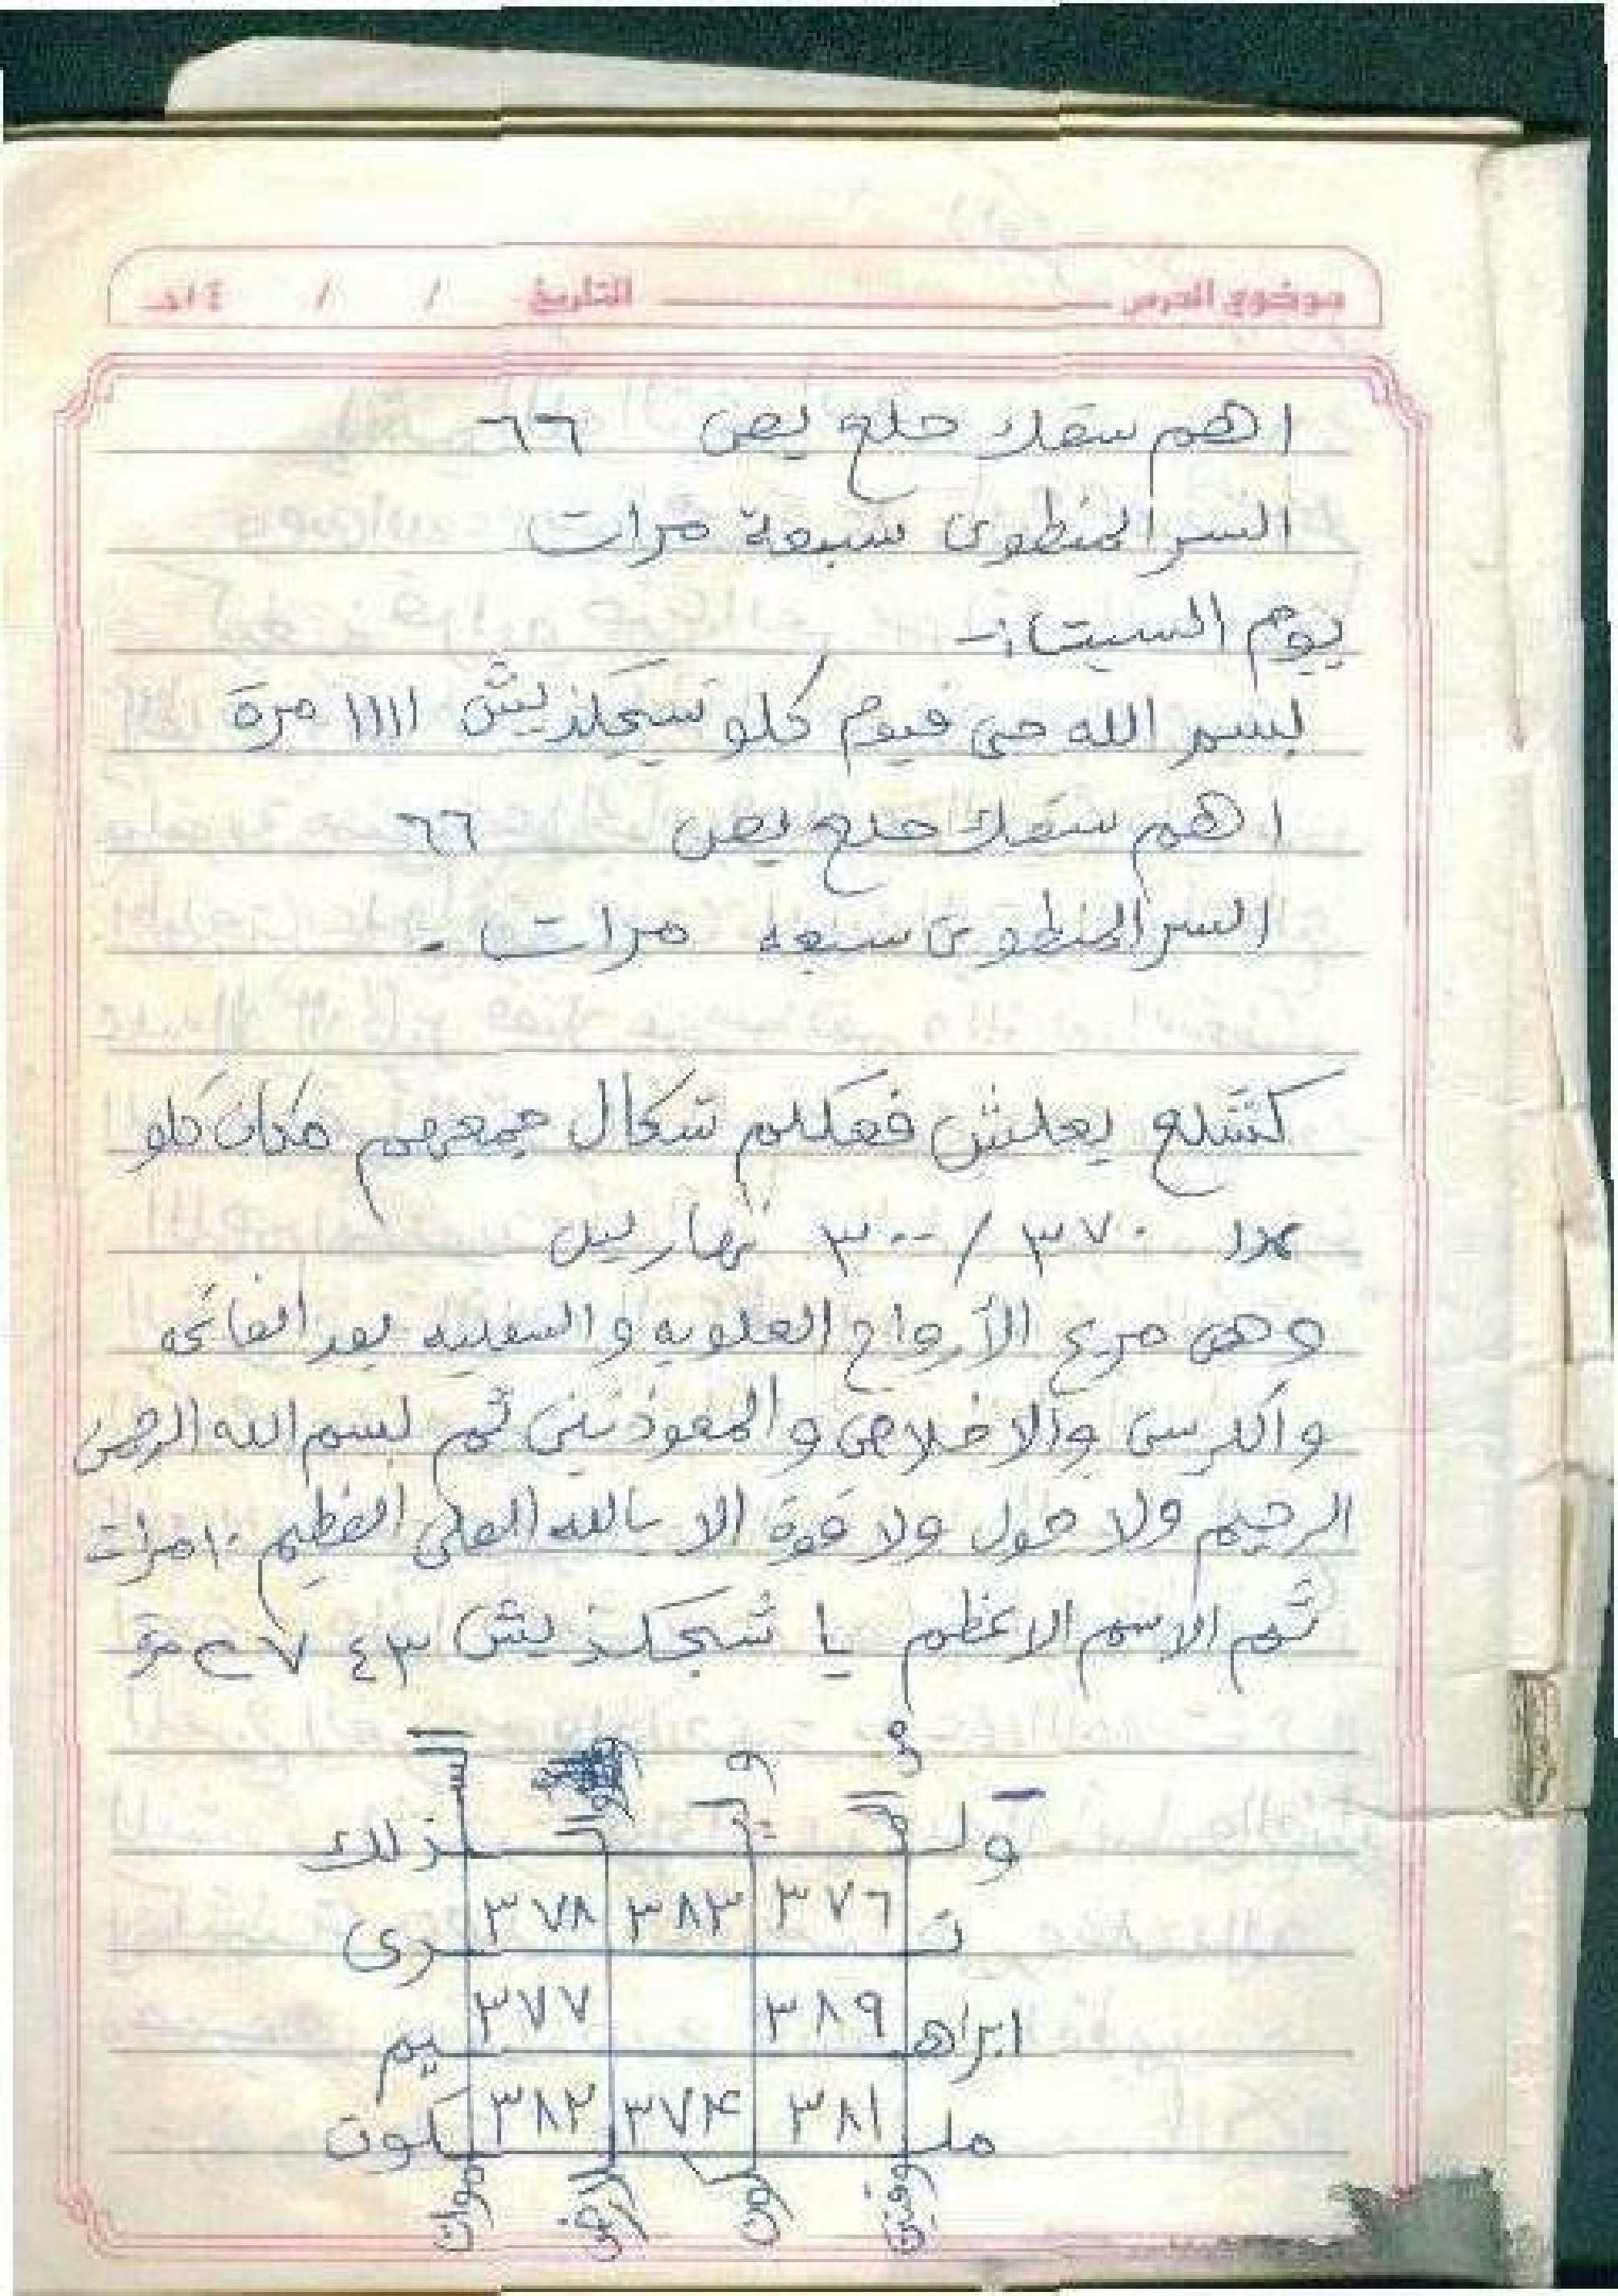 موضوع الدرس التاريخ / / ١٤هـ
اهم سقك حلع يص ٦٦
السر المنطوى سبعة مرات
يوم السبت :-
بسم الله حى قيوم كلو ١١١١ مرة
اهم سقك حلع يص ٦٦
السر المنطوى سبعه مرات -
كشلع يعلش فعكلم شكال جمعهم مكان كلو
٣٧٠ / ٣٠٠ نهار ليل
وهى مربع الأرواح العلويه والسفليه بعد الفاتحه
والكرسى والاخلاص والمعوذتين ثم بسم الله الرحمن
الرحيم ولا حول ولا قوة الا بالله العلى العظيم ١٠ مرات
ثم الاسم الاعظم يا ٤٣ ٧ مرة
و
وك ذلك
٣٧٦ ٣٨٣ ٣٧٨
ن رى
٣٨٩ ٣٧٧
ابراه يم
٣٨١ ٣٧٤ ٣٨٢
مل كوت
وقنين ون لارض موات